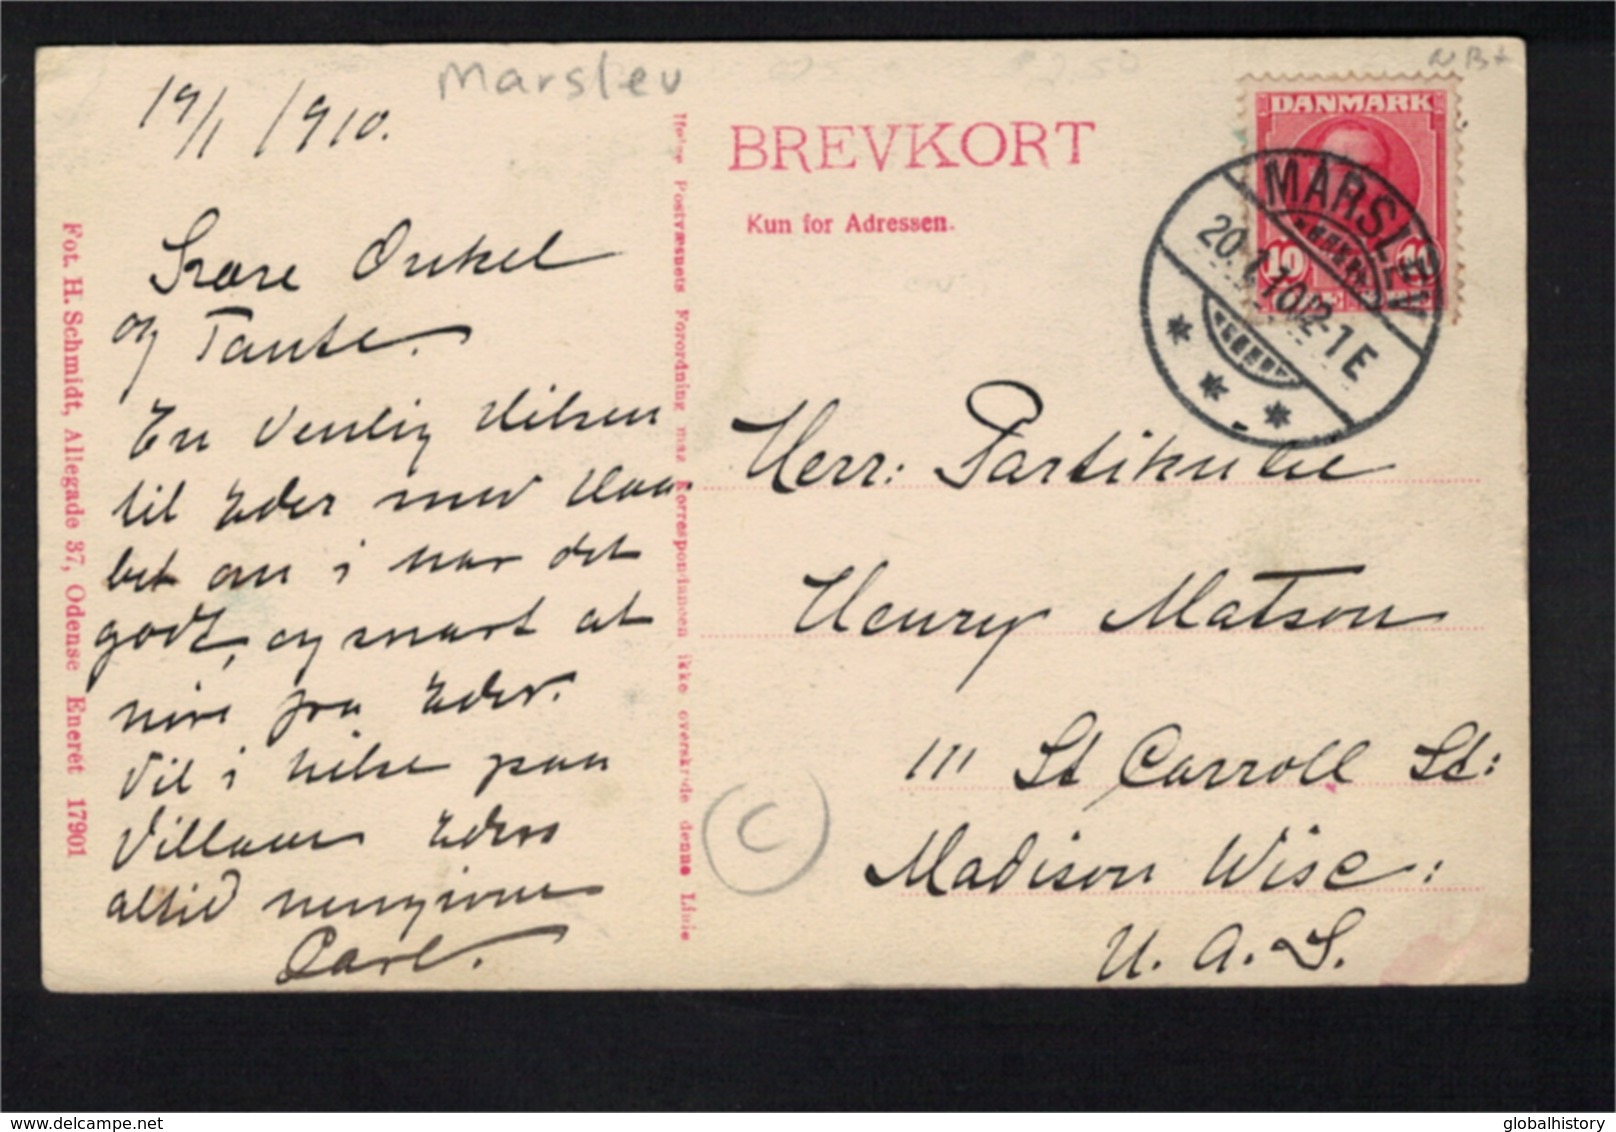 Marslev
19/1 1910.
Kære Onkel
og Tante.
En Venlig Hilsen
til Eder med Haa-
bet om i har det
godt, og snart at
höre fra Eder.
Vil i hilse paa
Villiam Eders
altid hengivne
Carl.
Fot. H. Schmidt, Allegade 37, Odense Eneret 17901
Ifølge Postvæsnets Forordning maa Korrespondancen ikke overskride denne Linie
BREVKORT
Kun for Adressen.
DANMARK
10
MARSLEV
20.1.10 12-1 E
Herr: Partikulie
Henry Matson
111 St Carroll St:
Madison Wisc:
U. A. S.
C
globalhistory